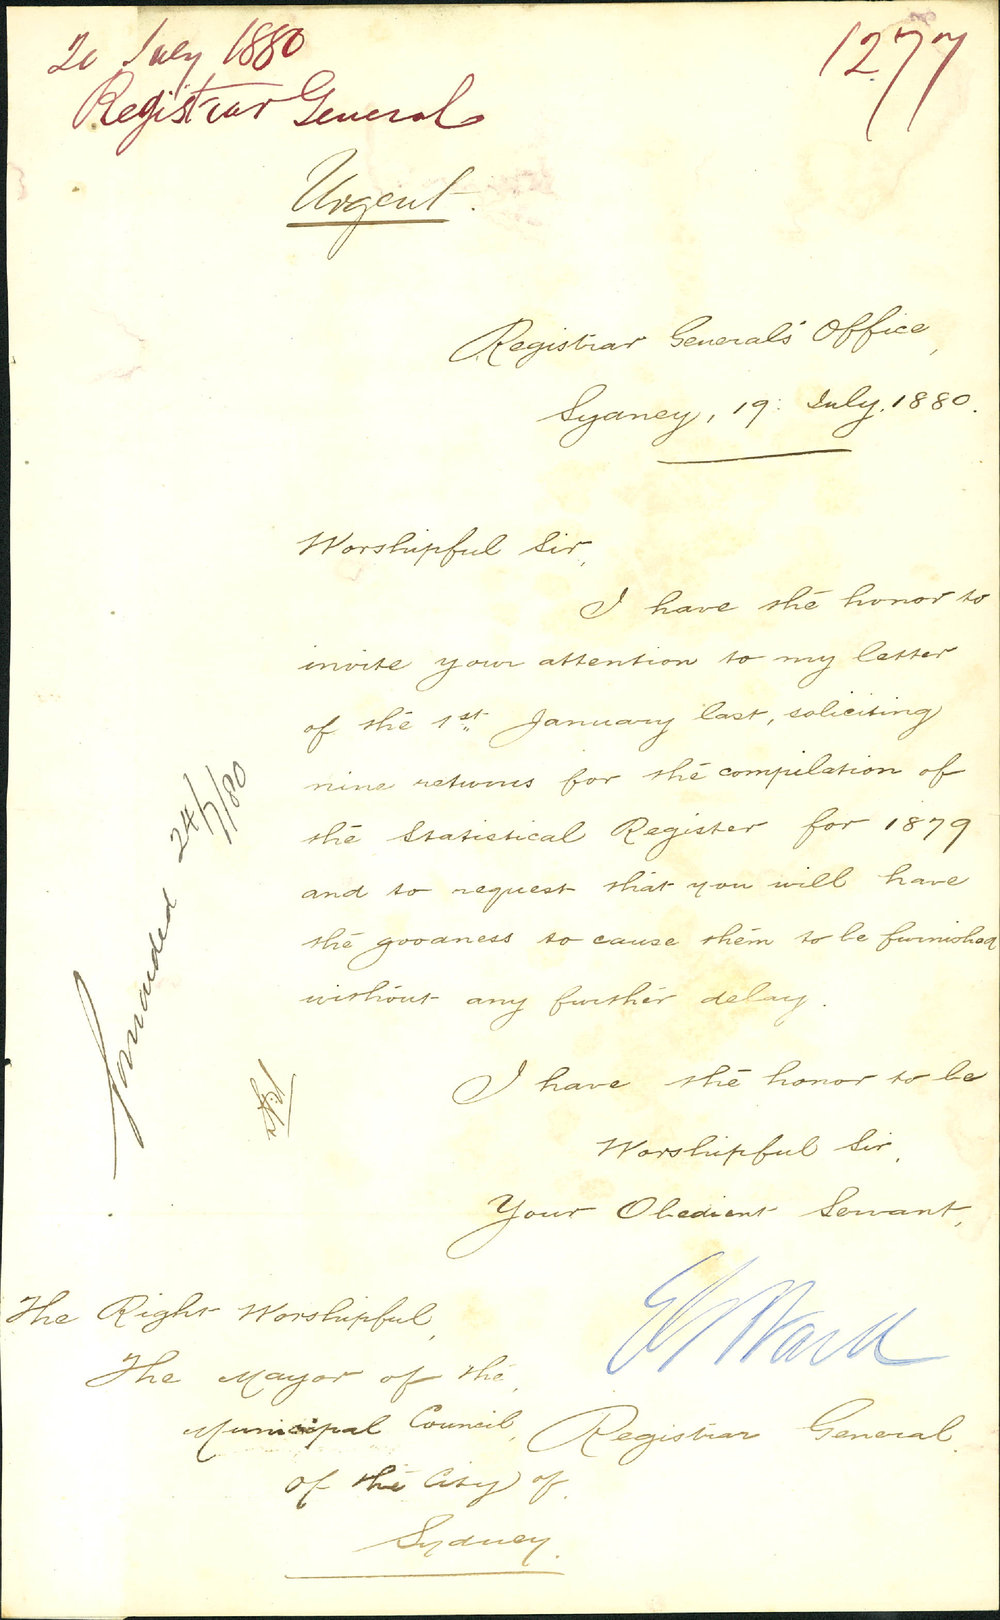 20 July 1880
1277
Registrar General
Urgent.
Registrar General's Office,
Sydney, 19. July. 1880.
Worshipful Sir,
I have the honor to
invite your attention to my letter
of the 1st January last, soliciting
nine returns for the compilation of
the Statistical Register for 1879
and to request that you will have
the goodness to cause them to be furnished
without any further delay.
Forwarded 24/7/80
I have the honor to be
Worshipful Sir,
Your Obedient Servant,
Ward
Registrar General.
The Right Worshipful,
The Mayor of the,
Municipal Council,
of the City of,
Sydney.